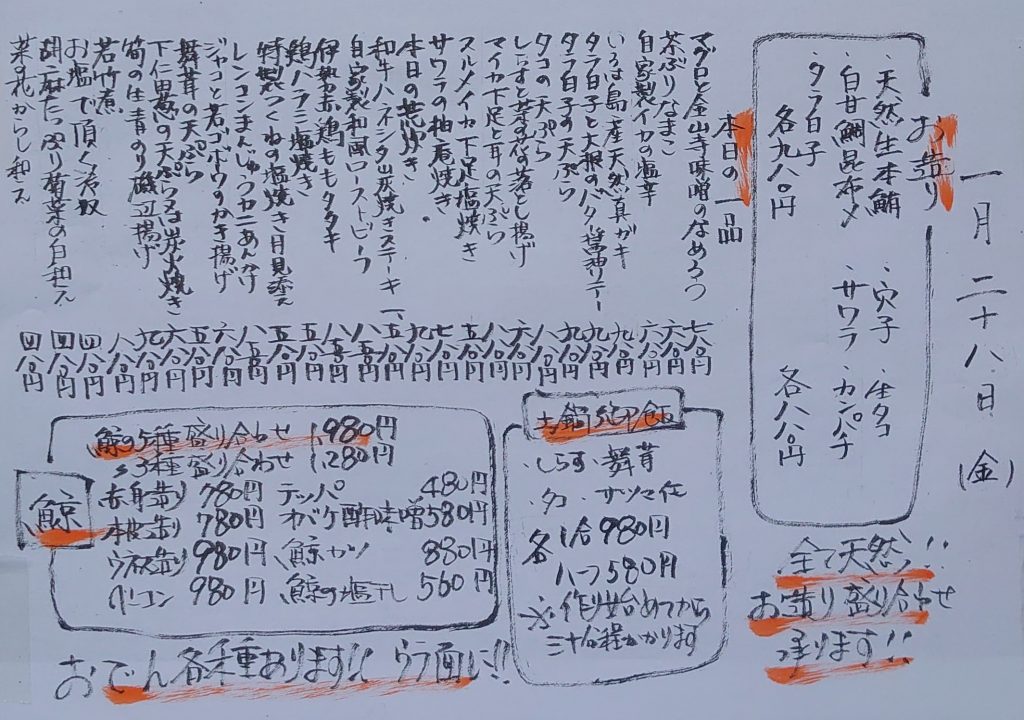 一月二十八日(金)
お造り
・天然生本鮪
・白甘鯛昆布〆
・タラ白子
各九八〇円
・穴子
・サワラ
・生タコ
・カンパチ
各八八〇円
全て天然!!
お造り盛り合わせ
承ります!!
本日の一品
マグロと金山寺味噌のなめろう 七八〇円
茶ぶりなまこ 六八〇円
自家製イカの塩辛 六八〇円
いろは島産天然真ガキ 九八〇円
タラ白子と大根のバター醤油ソテー 九八〇円
タラ白子の天ぷら 九八〇円
タコの天ぷら 八八〇円
しらすと菜の花の落とし揚げ 六八〇円
マイカ下足と耳の天ぷら 八八〇円
スルメイカ下足塩焼き 五八〇円
サワラの柚庵焼き 七八〇円
本日の荒炊き 九八〇円
和牛ハネシタ山炭焼きステーキ 一、五八〇円
自家製和風ローストビーフ
伊勢赤鶏ももタタキ
鶏ハラミ塩焼き
特製つくねの塩焼き目見添え
レンコンまんじゅうカニあんかけ
ジャコと若ゴボウのかき揚げ 六八〇円
舞茸の天ぷら 五八〇円
下仁田葱の天ぷら又は炭火焼き 六八〇円
筍の生青のり磯辺揚げ 九八〇円
若竹煮 八八〇円
お塩で頂く冷奴 四八〇円
胡麻たっぷり菊菜の白和え 四八〇円
菜の花からし和え 四八〇円
土鍋御飯
・しらす・舞茸
・タコ・サツマ芋
各1合980円
ハーフ580円
※作り始めてから
三十分程かかります
鯨
鯨の5種盛り合わせ 1,980円
〃3種盛り合わせ 1,280円
赤身造り 780円 テッパ 480円
本皮造り 780円 オバケ酢味噌 580円
ウネス造り 980円 鯨カツ 880円
ベーコン 980円 鯨の塩干し 560円
おでん各種あります!! ウラ面に!!